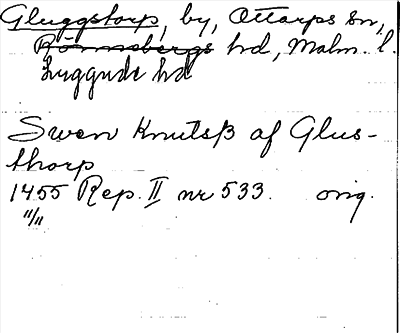 Gluggstorp, by, Ottarps sn,
Rönnebergs hd, Malm. l.
Luggude hd
Swen Knutsß af Glus-
thorp
1455 Rep. II nr 533. orig.
11/11